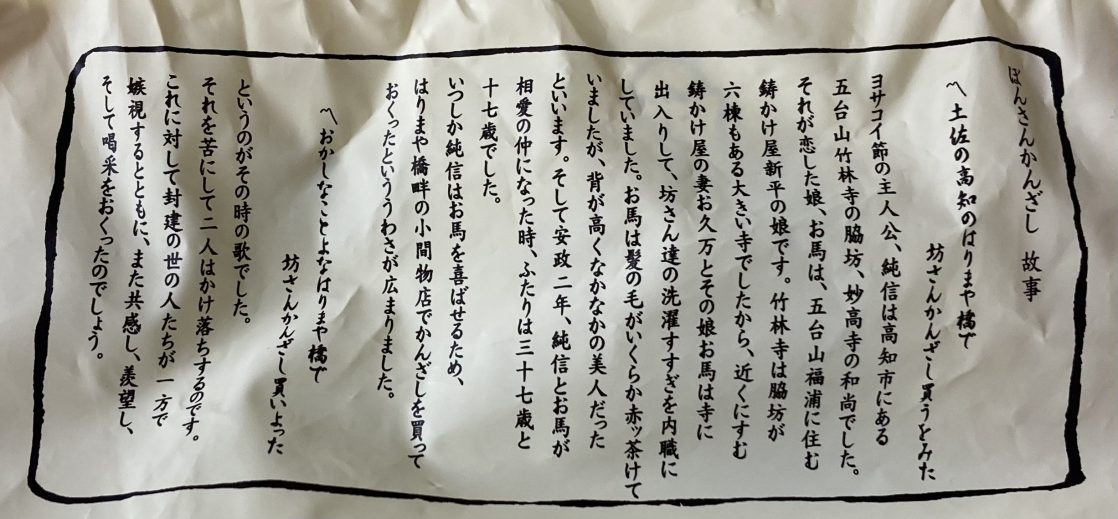 ぼんさんかんざし 故事
〽土佐の高知のはりまや橋で
坊さんかんざし買うをみた
ヨサコイ節の主人公、純信は高知市にある
五台山竹林寺の脇坊、妙高寺の和尚でした。
それが恋した娘、お馬は、五台山福浦に住む
鋳かけ屋新平の娘です。竹林寺は脇坊が
六棟もある大きい寺でしたから、近くにすむ
鋳かけ屋の妻お久万とその娘お馬は寺に
出入りして、坊さん達の洗濯すすぎを内職に
していました。お馬は髪の毛がいくらか赤ッ茶けて
いましたが、背が高くなかなかの美人だった
といいます。そして安政二年、純信とお馬が
相愛の仲になった時、ふたりは三十七歳と
十七歳でした。
いつしか純信はお馬を喜ばせるため、
はりまや橋畔の小間物店でかんざしを買って
おくったといううわさが広まりました。
〽おかしなことよなはりまや橋で
坊さんかんざし買いよった
というのがその時の歌でした。
それを苦にして二人はかけ落ちするのです。
これに対して封建の世の人たちが一方で
嫉視するとともに、また共感し、羨望し、
そして喝采をおくったのでしょう。